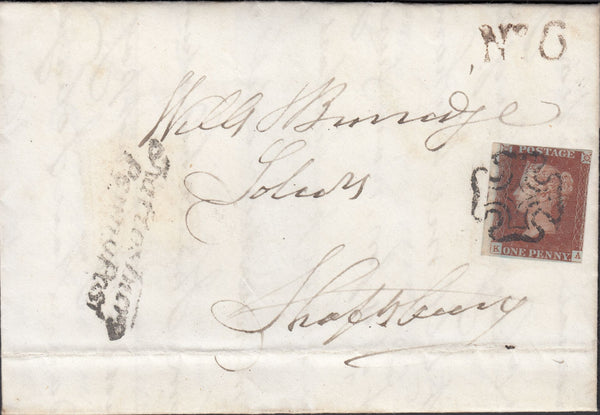 No. 6
Wells & Burridge
Solrs
Shaftsbury
Shaftesbury
Penny Post
POSTAGE
K A
ONE PENNY